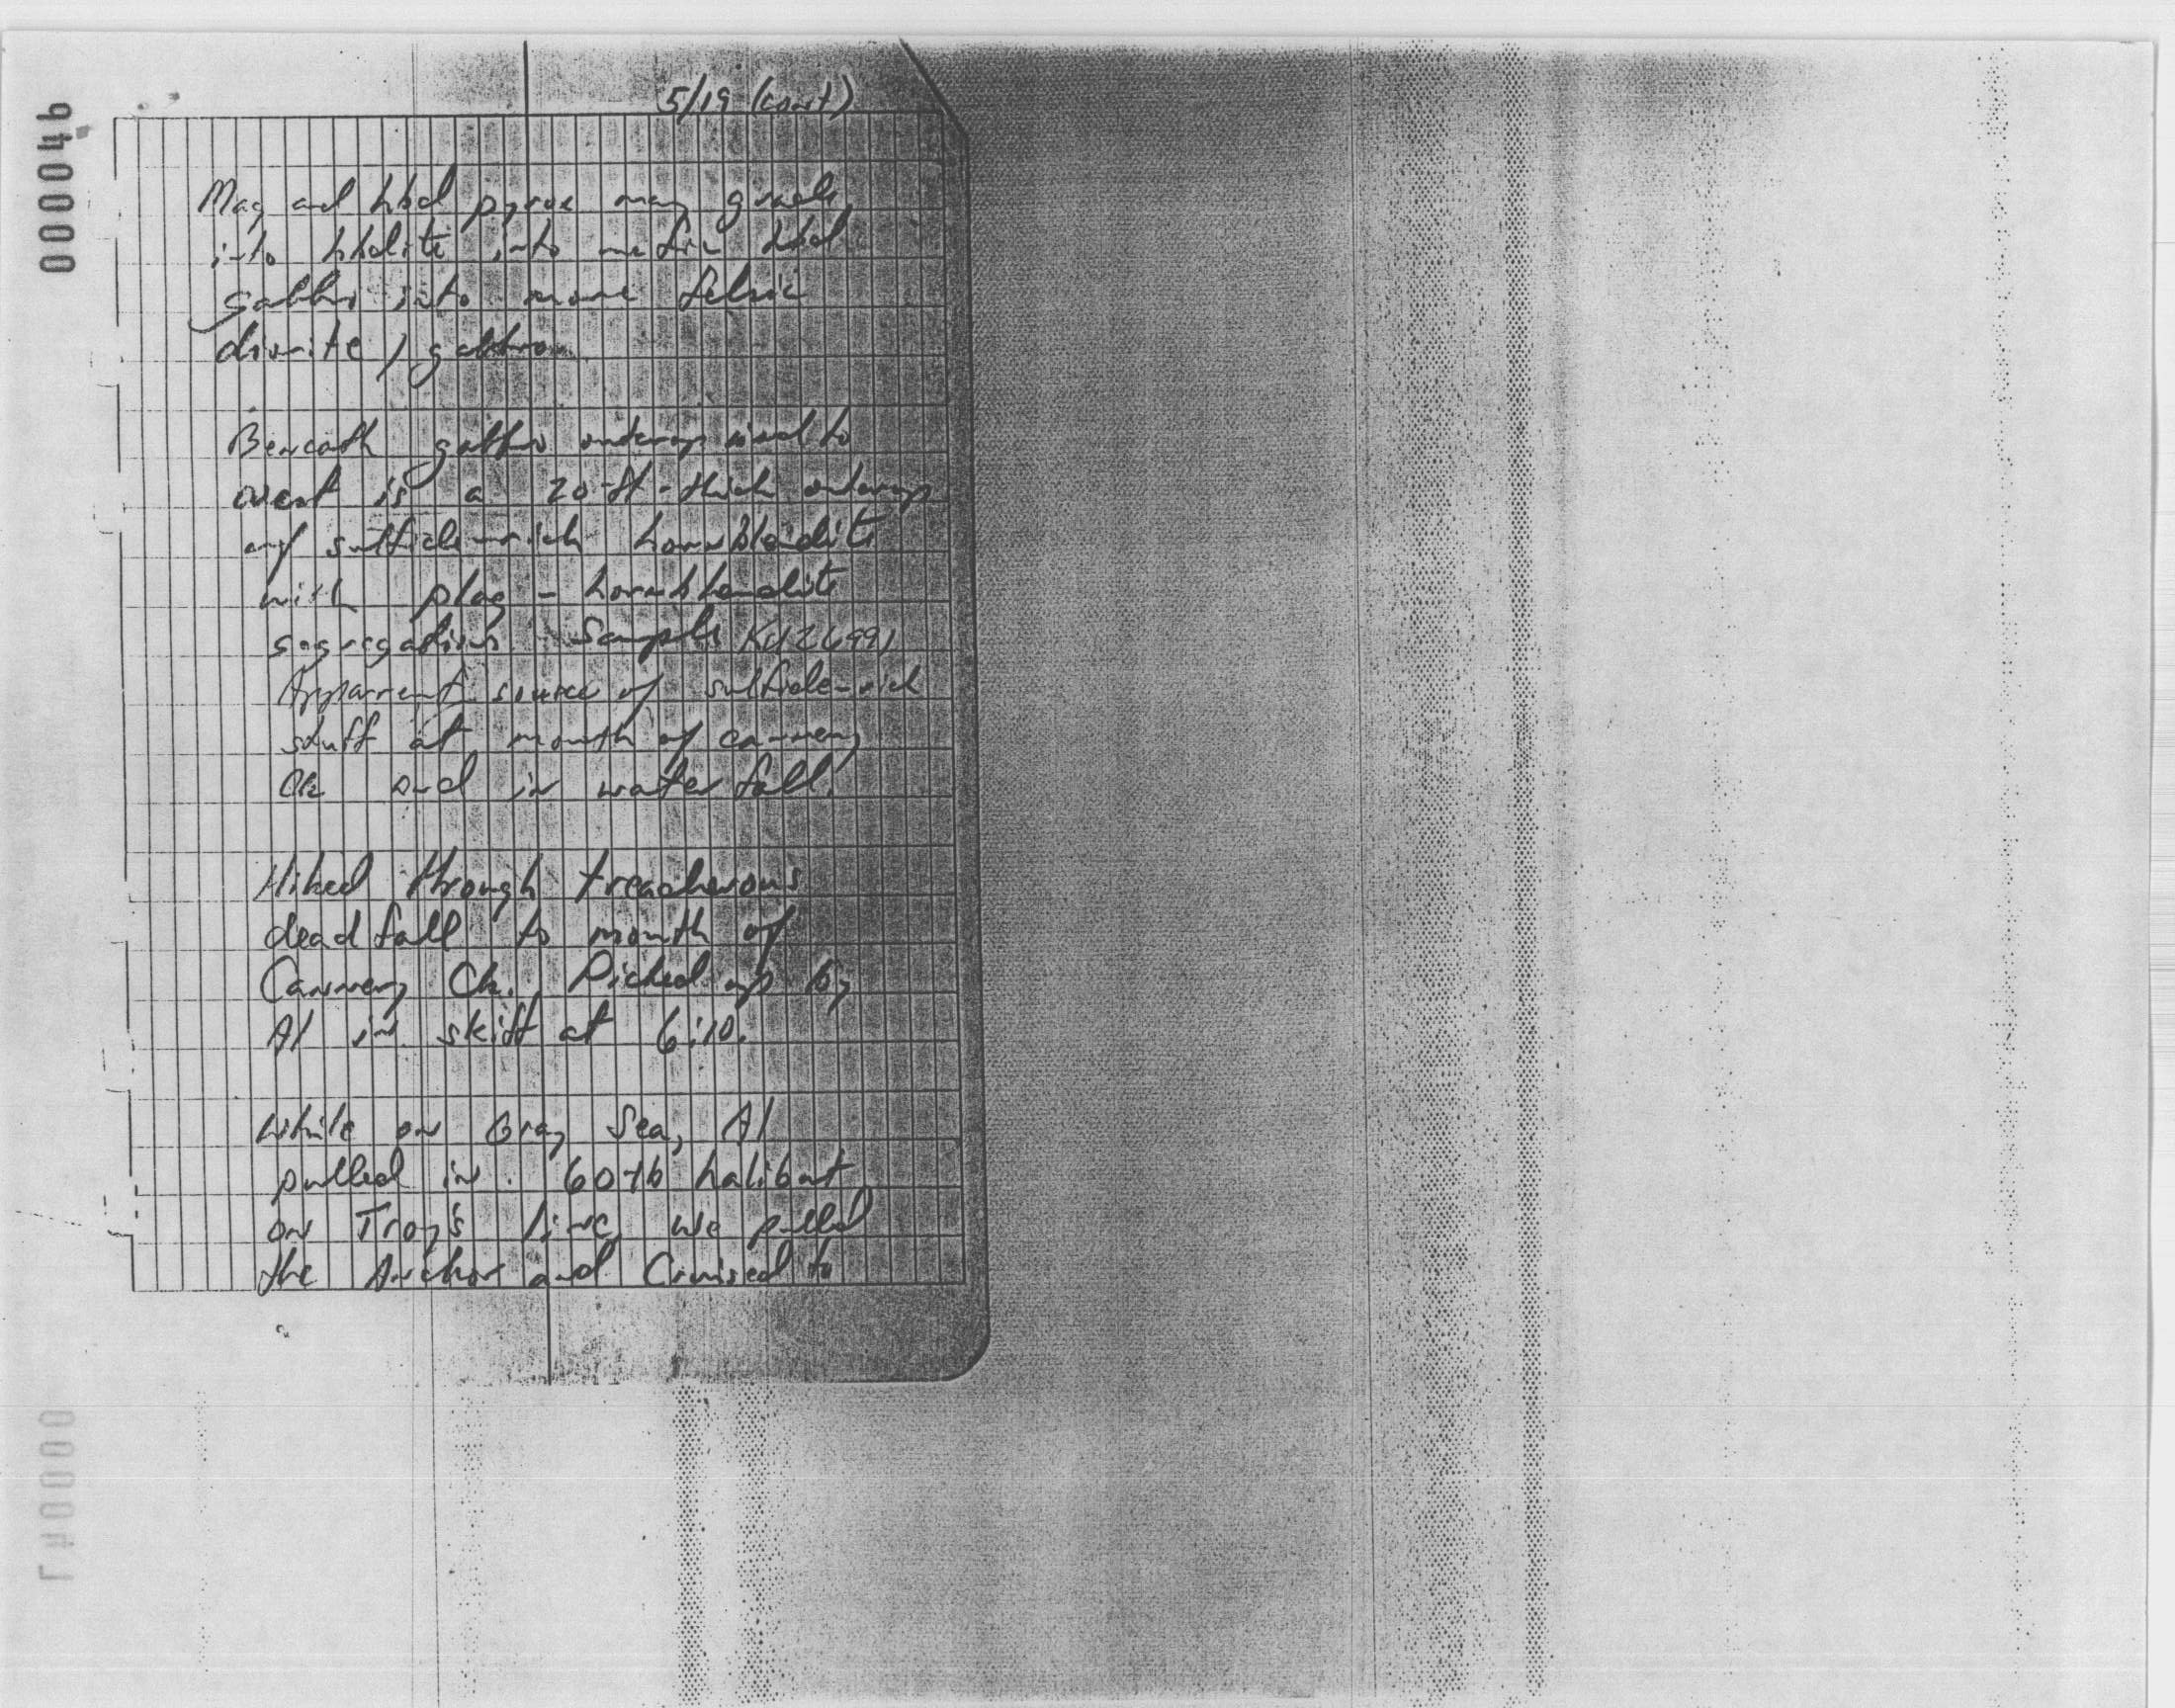 000046
5/19 (cont)
Mag and hbd pyrox may grade
into hbdite into mafic hbd
gabbro into more felsic
diorite / gabbro.
Beneath gabbro outcrop and to
west is a 20-ft-thick outcrop
of sulfide-rich hornblendite
with plag - hornblendite
segregations. Sample
Apparent source of sulfide-rich
stuff at mouth of cannery
Ck and in waterfall.
Hiked through treacherous
deadfall to mouth of
Cannery Ck. Picked up by
Al in skiff at 6:10.
While on Gray Sea, Al
pulled in 60-lb halibut
on Troy's line. We pulled
the Anchor and Cruised to